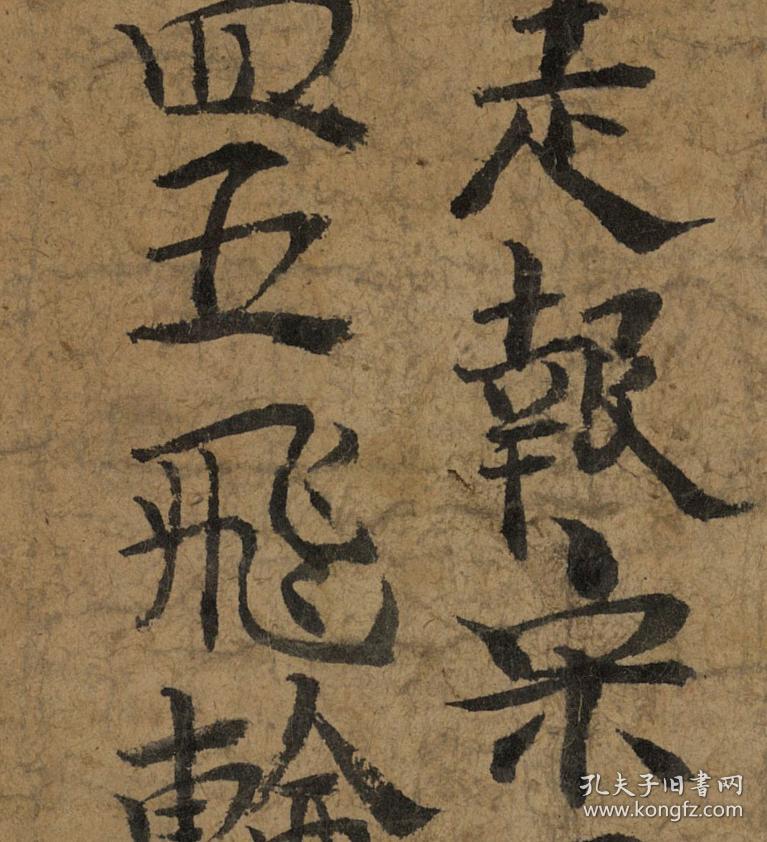 走報宋
四五飛輪
孔夫子旧書网
www.kongfz.com